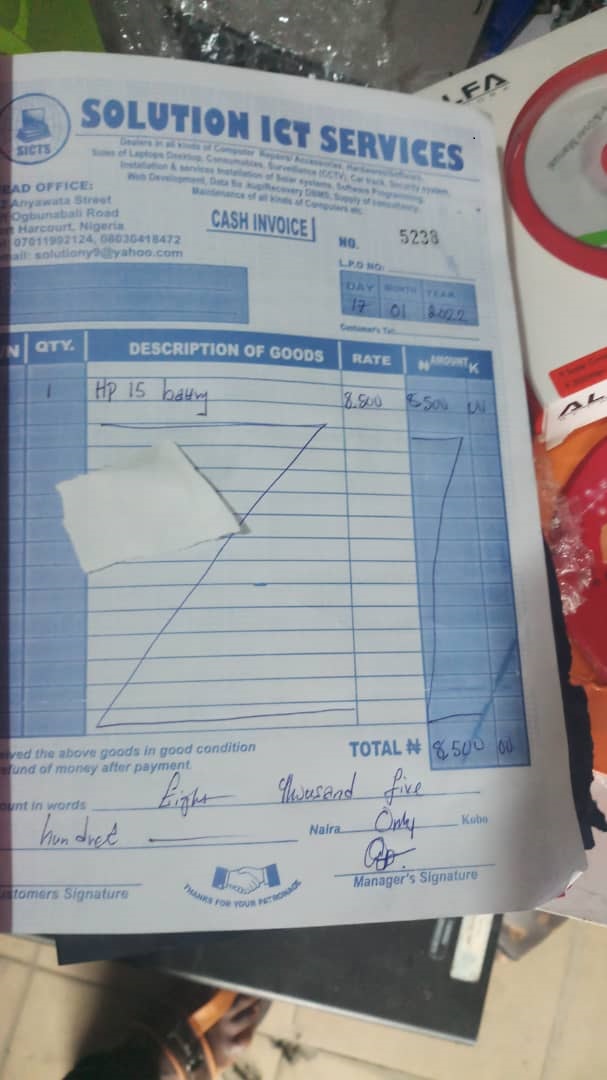 SICTS
SOLUTION ICT SERVICES
Dealers in all kinds of Computer Repairs/ Accessories, Hardware/Software,
Sales of Laptops Desktop, Consumables, Surveillance (CCTV), Car track, Security system,
Installation & services Installation of Solar systems, Software Programming
Web Development, Data Recovery DBMS, Supply of consultancy
Maintenance of all kinds of Computers etc.
EAD OFFICE:
Anyawata Street
Ogbunabali Road
Harcourt, Nigeria
07011992124, 08030418472
mail: solutiony9@yahoo.com
CASH INVOICE
NO. 5238
L.P.O NO:
DAY MONTH YEAR
17 01 2022
Customer's Tel:
/N QTY. DESCRIPTION OF GOODS RATE AMOUNT
₦ K
1 HP 15 battry 8.500 8500 00
ived the above goods in good condition
efund of money after payment.
TOTAL ₦ 8500 00
ount in words Eight thousand five
hundred Naira Only Kobo
ustomers Signature
THANKS FOR YOUR PATRONAGE
Manager's Signature
LFA
AL